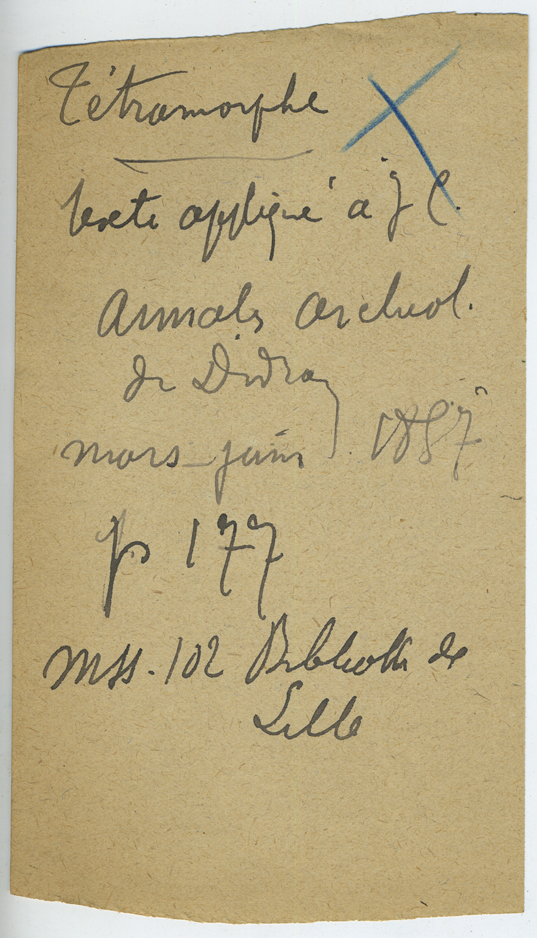 Tétramorphe
texte appliqué à J C.
Annales archeol.
de Didron
mars-juin 1887
p 177
mss. 102 Biblioth de
Lille